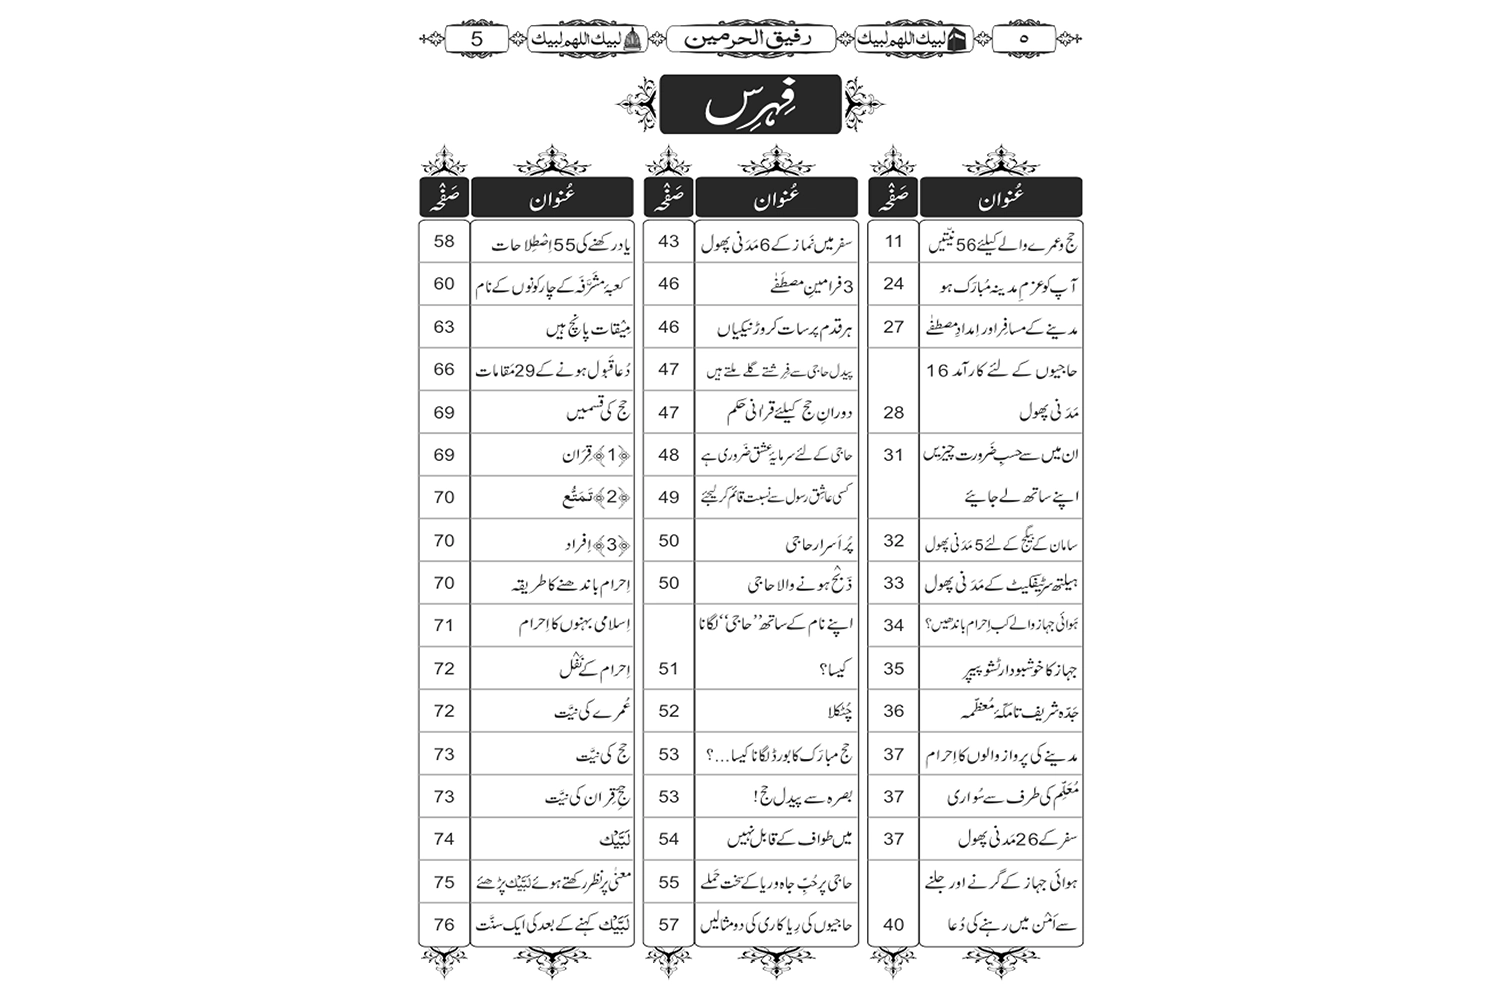 ۵ لبیك اللهم لبیك رفیق الحرمین لبیك اللهم لبیك 5
فِہرِس
عُنوان صَفْحہ
حج و عمرے والے کیلئے 56 نیّتیں 11
آپ کو عزمِ مدینہ مُبارَک ہو 24
مدینے کے مسافر اور اِمدادِ مصطَفٰے 27
حاجیوں کے لئے کار آمد 16
مَدَنی پھول 28
ان میں سے حسبِ ضَرورت چیزیں 31
اپنے ساتھ لے جایئے
سامان کے بیگیج کے لئے 5 مَدَنی پھول 32
ہیلتھ سرٹیفکیٹ کے مَدَنی پھول 33
ہَوائی جہاز والے کب اِحرام باندھیں؟ 34
جہاز کا خوشبودار ٹشو پیپر 35
جَدّہ شریف تا مکّۂ مُعظّمہ 36
مدینے کی پرواز والوں کا اِحرام 37
مُعَلِّم کی طرف سے سُواری 37
سفر کے 26 مَدَنی پھول 37
ہوائی جہاز کے گرنے اور جلنے
سے اَمْن میں رہنے کی دُعا 40
عُنوان صَفْحہ
سفر میں نَماز کے 6 مَدَنی پھول 43
3 فرامینِ مصطَفٰے 46
ہر قدم پر سات کروڑ نیکیاں 46
پیدل حاجی سے فِرِشتے گلے ملتے ہیں 47
دورانِ حج کیلئے قراٰنی حکم 47
حاجی کے لئے سرمایۂ عشق ضَروری ہے 48
کسی عاشِقِ رسول سے نسبت قائم کر لیجئے 49
پُراَسرار حاجی 50
ذَبْح ہونے والا حاجی 50
اپنے نام کے ساتھ ’’حاجی‘‘ لگانا
کیسا؟ 51
چُٹکلا 52
حج مبارَک کا بورڈ لگانا کیسا...؟ 53
بصرہ سے پیدل حج! 53
میں طواف کے قابل نہیں 54
حاجی پر حُبِّ جاہ و ریا کے سخت حَملے 55
حاجیوں کی رِیا کاری کی دو مثالیں 57
عُنوان صَفْحہ
یاد رکھنے کی 55 اِصْطِلاحات 58
کعبۂ مُشَرَّفہ کے چار کونوں کے نام 60
مِیْقات پانچ ہیں 63
دُعا قَبول ہونے کے 29 مَقامات 66
حج کی قسمیں 69
﴿1﴾ قِرَان 69
﴿2﴾ تَمَتُّع 70
﴿3﴾ اِفراد 70
اِحرام باندھنے کا طریقہ 70
اِسلامی بہنوں کا اِحرام 71
اِحرام کے نَفْل 72
عُمرے کی نیَّت 72
حج کی نیَّت 73
حجِ قِران کی نیَّت 73
لَبَّیْک 74
معنٰی پر نظر رکھتے ہوئے لَبَّیْک پڑھئے 75
لَبَّیْک کہنے کے بعد کی ایک سنَّت 76